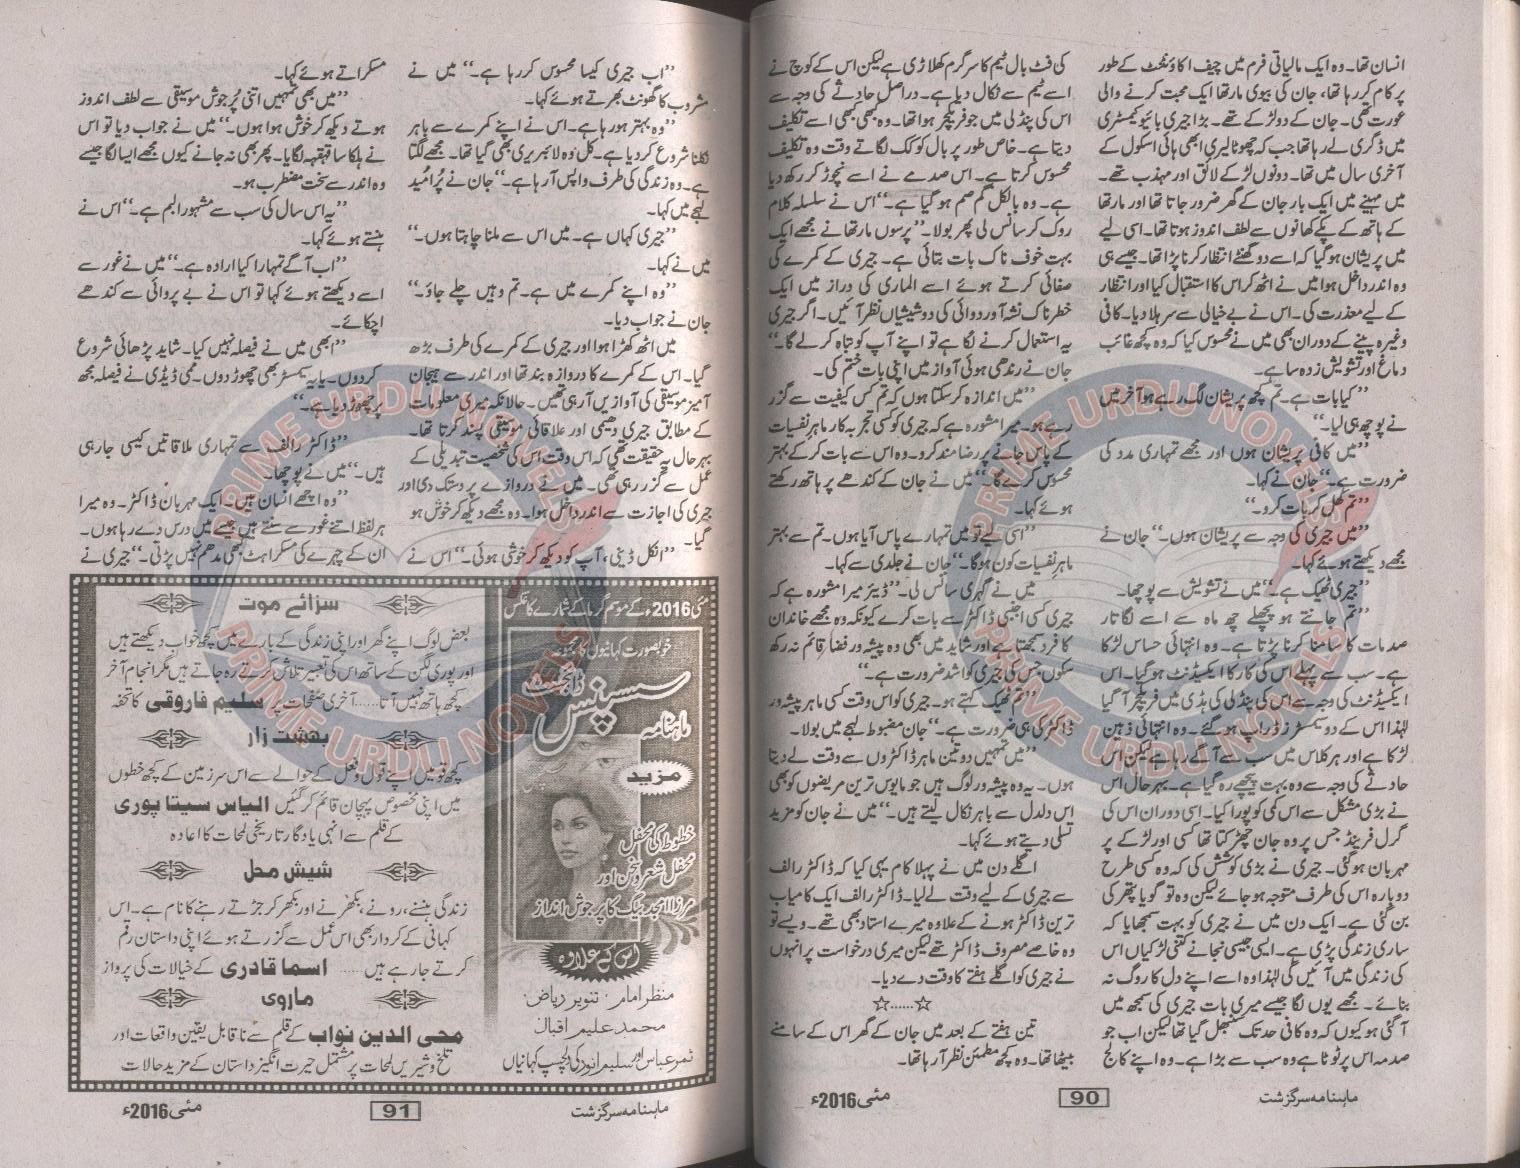 انسان تھا۔ وہ ایک مالیاتی فرم میں چیف اکاؤنٹنٹ کے طور
پر کام کر رہا تھا، جان کی بیوی مارتھا ایک محبت کرنے والی
عورت تھی۔ جان کے دو لڑکے تھے۔ بڑا جیری بائیو کیمسٹری
میں ڈگری لے رہا تھا جب کہ چھوٹا لیری ابھی ہائی اسکول کے
آخری سال میں تھا۔ دونوں لڑکے لائق اور مہذب تھے۔
میں مہینے میں ایک بار جان کے گھر ضرور جاتا تھا اور مارتھا
کے ہاتھ کے پکے کھانوں سے لطف اندوز ہوتا تھا۔ اسی لیے
میں پریشان ہو گیا کہ اسے دو گھنٹے انتظار کرنا پڑا تھا۔ جیسے ہی
وہ اندر داخل ہوا میں نے اٹھ کر اس کا استقبال کیا اور انتظار
کے لیے معذرت کی۔ اس نے بے خیالی سے سر ہلا دیا۔ کافی
وغیرہ پینے کے دوران بھی میں نے محسوس کیا کہ وہ کچھ غائب
دماغ اور تشویش زدہ سا ہے۔
’’کیا بات ہے۔ تم کچھ پریشان لگ رہے ہو آخر میں
نے پوچھ ہی لیا۔‘‘
’’میں کافی پریشان ہوں اور مجھے تمہاری مدد کی
ضرورت ہے۔‘‘ جان نے کہا۔
’’تم کھل کر بات کرو۔‘‘
’’میں جیری کی وجہ سے پریشان ہوں۔‘‘ جان نے
مجھے دیکھتے ہوئے کہا۔
’’جیری ٹھیک ہے۔‘‘ میں نے تشویش سے پوچھا۔
’’تم جانتے ہو پچھلے چھ ماہ سے اسے لگاتار
صدمات کا سامنا کرنا پڑتا ہے۔ وہ انتہائی حساس لڑکا
ہے۔ سب سے پہلے اس کی کار کا ایکسیڈنٹ ہو گیا۔ اس
ایکسیڈنٹ کی وجہ سے اس کی پنڈلی کی ہڈی میں فریکچر آ گیا
لہٰذا اس کے دو سیمسٹرز ڈراپ ہو گئے۔ وہ انتہائی ذہین
لڑکا ہے اور ہر کلاس میں سب سے آگے رہا ہے لیکن اس
حادثے کی وجہ سے وہ بہت پیچھے رہ گیا ہے۔ بہرحال اس
نے بڑی مشکل سے اس کمی کو پورا کیا۔ اسی دوران اس کی
گرل فرینڈ جس پر وہ جان چھڑکتا تھا کسی اور لڑکے پر
مہربان ہو گئی۔ جیری نے بڑی کوشش کی کہ وہ کسی طرح
دوبارہ اس کی طرف متوجہ ہو جائے لیکن وہ تو گویا پتھر کی
بن گئی ہے۔ ایک دن میں نے جیری کو بہت سمجھایا کہ
ساری زندگی پڑی ہے۔ ایسی جیسی نجانے کتنی لڑکیاں اس
کی زندگی میں آئیں گی لہٰذا وہ اسے اپنے دل کا روگ نہ
بنائے۔ مجھے یوں لگا جیسے میری بات جیری کی سمجھ میں
آ گئی ہو کیوں کہ وہ کافی حد تک سنبھل گیا تھا لیکن اب جو
صدمہ اس پر ٹوٹا ہے وہ سب سے بڑا ہے۔ وہ اپنے کالج
کی فٹ بال ٹیم کا سرگرم کھلاڑی ہے لیکن اس کے کوچ نے
اسے ٹیم سے نکال دیا ہے۔ دراصل حادثے کی وجہ سے
اس کی پنڈلی میں جو فریکچر ہوا تھا۔ وہ بھی بھی اسے تکلیف
دیتا ہے۔ خاص طور پر بال کو کک لگاتے وقت وہ تکلیف
محسوس کرتا ہے۔ اس صدمے نے اسے نچوڑ کر رکھ دیا
ہے۔ وہ بالکل گم صم ہو گیا ہے۔‘‘ اس نے سلسلہ کلام
روک کر سانس لی پھر بولا۔ ’’پرسوں مارتھا نے مجھے ایک
بہت خوف ناک بات بتائی ہے۔ جیری کے کمرے کی
صفائی کرتے ہوئے اسے الماری کی دراز میں ایک
خطرناک نشہ آور دوائی کی دو شیشیاں نظر آئیں۔ اگر جیری
یہ استعمال کرنے لگا ہے تو اپنے آپ کو تباہ کر لے گا۔‘‘
جان نے رندھی ہوئی آواز میں اپنی بات ختم کی۔
’’میں اندازہ کر سکتا ہوں کہ تم کس کیفیت سے گزر
رہے ہو۔ میرا مشورہ ہے کہ جیری کو کسی تجربہ کار ماہر نفسیات
کے پاس جانے پر رضا مند کرو۔ وہ اس سے بات کر کے بہتر
محسوس کرے گا۔‘‘ میں نے جان کے کندھے پر ہاتھ رکھتے
ہوئے کہا۔
’’اسی لیے تو میں تمہارے پاس آیا ہوں۔ تم سے بہتر
ماہر نفسیات کون ہوگا۔‘‘ جان نے جلدی سے کہا۔
میں نے گہری سانس لی۔ ’’ڈیئر میرا مشورہ ہے کہ
جیری کسی اجنبی ڈاکٹر سے بات کرے کیونکہ وہ مجھے خاندان
کا فرد سمجھتا ہے اور شاید میں بھی وہ پیشہ ور فضا قائم نہ رکھ
سکوں جس کی جیری کو اشد ضرورت ہے۔‘‘
’’تم ٹھیک کہتے ہو۔ جیری کو اس وقت کسی ماہر پیشہ ور
ڈاکٹر کی ہی ضرورت ہے۔‘‘ جان مضبوط لہجے میں بولا۔
’’میں تمہیں دو تین ماہر ڈاکٹروں سے وقت لے دیتا
ہوں۔ یہ وہ پیشہ ور لوگ ہیں جو مایوس ترین مریضوں کو بھی
اس دلدل سے باہر نکال لیتے ہیں۔‘‘ میں نے جان کو مزید
تسلی دیتے ہوئے کہا۔
اگلے دن میں نے پہلا کام یہی کیا کہ ڈاکٹر رالف
سے جیری کے لیے وقت لے لیا۔ ڈاکٹر رالف ایک کامیاب
ترین ڈاکٹر ہونے کے علاوہ میرے استاد بھی تھے۔ ویسے تو
وہ خاصے مصروف ڈاکٹر تھے لیکن میری درخواست پر انہوں
نے جیری کو اگلے ہفتے کا وقت دے دیا۔
☆......☆
تین ہفتے کے بعد میں جان کے گھر اس کے سامنے
بیٹھا تھا۔ وہ کچھ مطمئن نظر آ رہا تھا۔
ماہنامہ سرگزشت
90
مئی 2016ء
’’اب جیری کیسا محسوس کر رہا ہے۔‘‘ میں نے
مشروب کا گھونٹ بھرتے ہوئے کہا۔
’’وہ بہتر ہو رہا ہے۔ اس نے اپنے کمرے سے باہر
نکلنا شروع کر دیا ہے۔ کل وہ لائبریری بھی گیا تھا۔ مجھے لگتا
ہے۔ وہ زندگی کی طرف واپس آ رہا ہے۔‘‘ جان نے پُر امید
لہجے میں کہا۔
’’جیری کہاں ہے۔ میں اس سے ملنا چاہتا ہوں۔‘‘
میں نے کہا۔
’’وہ اپنے کمرے میں ہے۔ تم وہیں چلے جاؤ۔‘‘
جان نے جواب دیا۔
میں اٹھ کھڑا ہوا اور جیری کے کمرے کی طرف بڑھ
گیا۔ اس کے کمرے کا دروازہ بند تھا اور اندر سے ہیجان
آمیز موسیقی کی آوازیں آ رہی تھیں۔ حالانکہ میری معلومات
کے مطابق جیری دھیمی اور علاقائی موسیقی پسند کرتا تھا۔
بہرحال یہ حقیقت تھی کہ اس وقت اس کی شخصیت تبدیلی کے
عمل سے گزر رہی تھی۔ میں نے دروازے پر دستک دی اور
جیری کی اجازت سے اندر داخل ہوا۔ وہ مجھے دیکھ کر خوش ہو
گیا۔
’’انکل ڈینی، آپ کو دیکھ کر خوشی ہوئی۔‘‘ اس نے
مسکراتے ہوئے کہا۔
’’میں بھی تمہیں اتنی پُر جوش موسیقی سے لطف اندوز
ہوتے دیکھ کر خوش ہوا ہوں۔‘‘ میں نے جواب دیا تو اس
نے ہلکا سا قہقہہ لگایا۔ پھر بھی نہ جانے کیوں مجھے ایسا لگا جیسے
وہ اندر سے سخت مضطرب ہو۔
’’یہ اس سال کی سب سے مشہور البم ہے۔‘‘ اس نے
ہنستے ہوئے کہا۔
’’اب آگے تمہارا کیا ارادہ ہے۔‘‘ میں نے غور سے
اسے دیکھتے ہوئے کہا تو اس نے بے پروائی سے کندھے
اچکائے۔
’’ابھی میں نے فیصلہ نہیں کیا۔ شاید پڑھائی شروع
کر دوں۔ یا یہ سیمسٹر بھی چھوڑ دوں۔ ممی ڈیڈی نے فیصلہ مجھ
پر چھوڑ دیا ہے۔‘‘
’’ڈاکٹر رالف سے تمہاری ملاقاتیں کیسی جا رہی
ہیں۔‘‘ میں نے پوچھا۔
’’وہ اچھے انسان ہیں۔ ایک مہربان ڈاکٹر۔ وہ میرا
ہر لفظ اتنے غور سے سنتے ہیں جیسے میں درس دے رہا ہوں۔
ان کے چہرے کی مسکراہٹ بھی مدھم نہیں پڑتی۔‘‘ جیری نے
مئی 2016ء کے موسم گرما کے شمارے کا عکس
خوبصورت کہانیوں کا مجموعہ
ماہنامہ سسپنس ڈائجسٹ
مزید
خطوط کی محفل
محفل شعر و سخن اور
مرزا امجد بیگ کا پر جوش انداز
اس کے علاوہ
منظر امام، تنویر ریاض،
محمد علیم اقبال
ثمر عباس اور سلیم انور کی دلچسپ کہانیاں
سزائے موت
بعض لوگ اپنے گھر اور اپنی زندگی کے بارے میں کچھ خواب دیکھتے ہیں
اور پوری لگن کے ساتھ اس کی تعبیر تلاش کرتے رہ جاتے ہیں مگر انجام آخر
کچھ ہاتھ نہیں آتا...... آخری صفحات پر سلیم فاروقی کا تحفہ
بہشت زار
کچھ تو میں اپنے قول و فعل کے حوالے سے اس سرزمین کے کچھ خطوں
میں اپنی مخصوص پہچان قائم کر گئیں الیاس سیتا پوری
کے قلم سے انہی یادگار تاریخی لمحات کا اعادہ
شیش محل
زندگی ہنسنے، رونے، بکھرنے اور بکھر کر جڑتے رہنے کا نام ہے۔ اس
کہانی کے کردار بھی اس عمل سے گزرتے ہوئے اپنی داستان رقم
کرتے جا رہے ہیں ...... اسما قادری کے خیالات کی پرواز
ماروی
محی الدین نواب کے قلم سے ناقابل یقین واقعات اور
تلخ و شیریں لمحات پر مشتمل حیرت انگیز داستان کے مزید حالات
ماہنامہ سرگزشت
91
مئی 2016ء
PRIME URDU NOVELS
PRIME URDU NOVELS
PRIME URDU NOVELS
PRIME URDU NOVELS